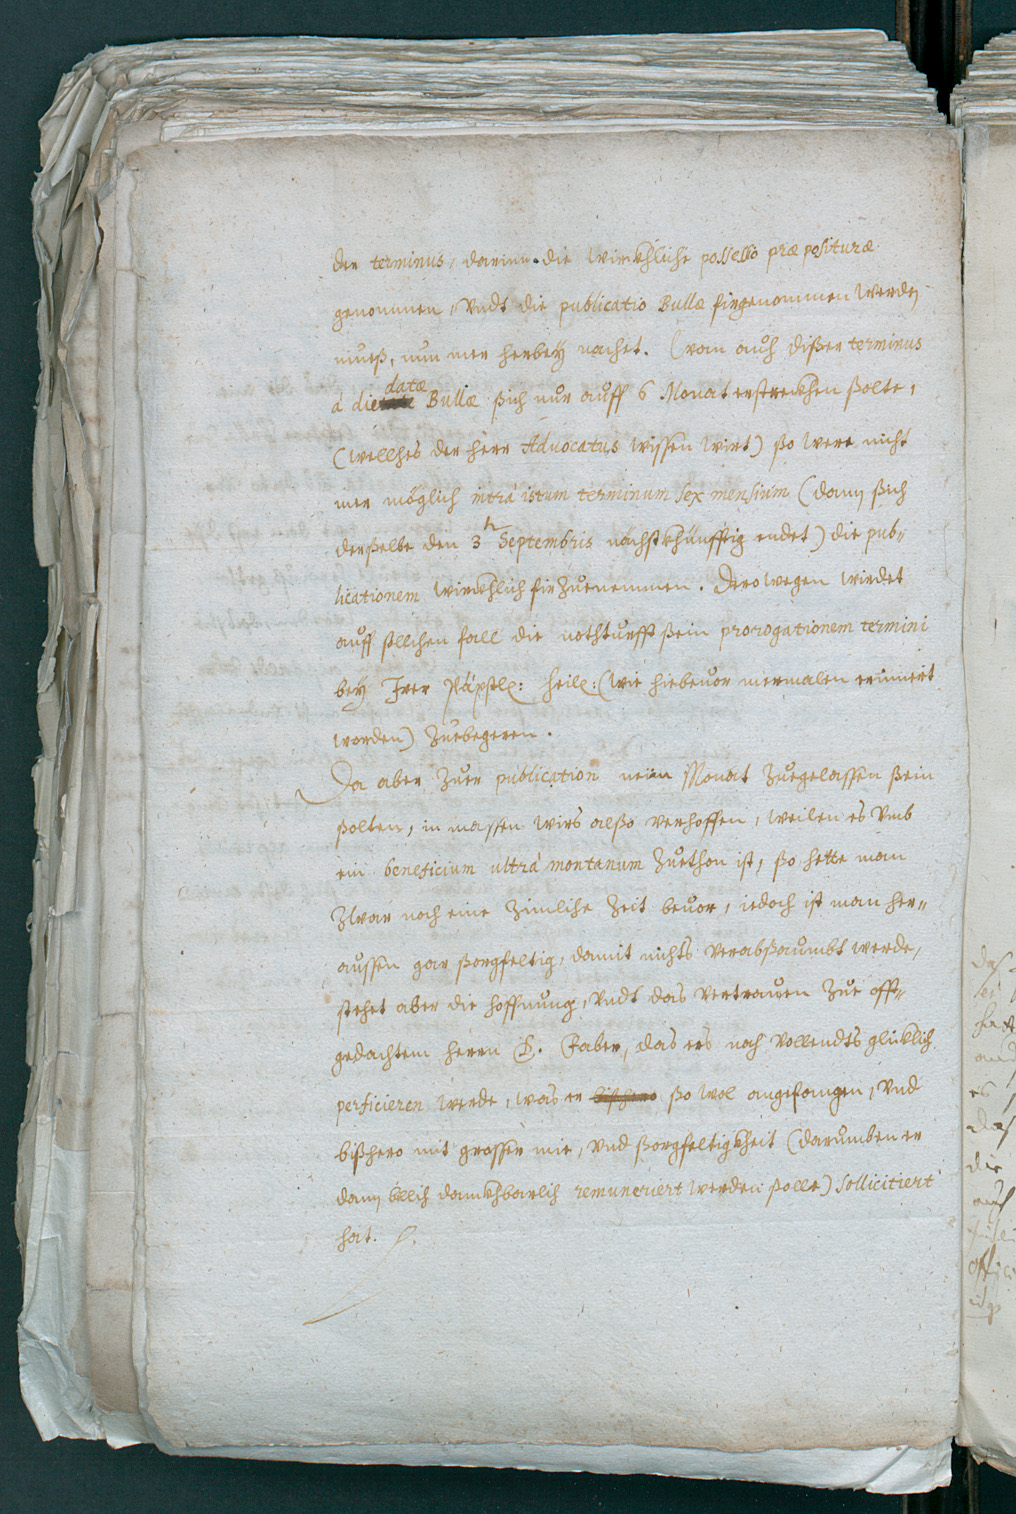 der terminus, darinn die wirckhliche possessio præposituræ
genommen, Vndt die publicatio Bullæ firgenommen werden
mueß, nun mer herbey nachet. (wan auch dißer terminus
datæ
á die Bullæ ßich nur auff 6 Monat erstreckhen ßolte,
(wellches der herr Advocatus wissen wirt) ßo were nicht
mer möglich intrá istum terminum sex mensium (dann ßich
derßelbe den 3 Septembris nächstkhünfftig endet) die pub-
licationem wirckhlich fir Zuenemmen. Dero wegen wirdet
auff sollchen fall die nothturfft ßein prorogationem termini
bey Irer Päpstl: heil: (wie hiebeuor mermalen erinnert
worden) Zuebegeren.
Da aber Zuer publication neün Monat Zuegelassen ßein
ßolten, in massen wirs alßo verhoffen, weilen es Vmb
ein beneficium ultrá montanum Zuethon ist, ßo hette man
Zwar noch eine Zimliche Zeit beuor, iedoch ist man her-
aussen gar ßorgfeltig, damit nichts verabßaumbt werde,
stehet aber die hoffnung, Vndt das vertrauen Zue off-
gedachtem herrn D. Faber, das ers noch vollendts glicklich
perficieren werde, was er bißhero ßo wol angefangen, Vnd
bißhero mit grosser mie, Vnd ßorgfeltigkheit (darumben er
dann billich danckhbarlich remuneriert werden ßolle) sollicitiert
hat.